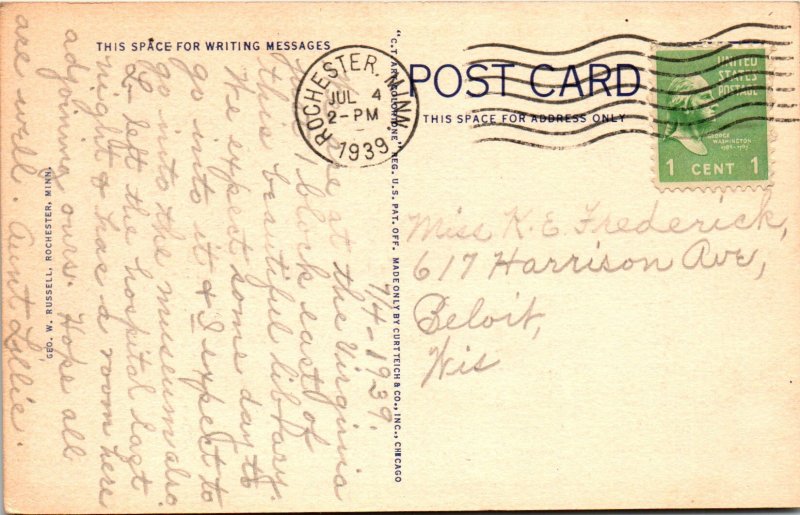 THIS SPACE FOR WRITING MESSAGES
POST CARD
THIS SPACE FOR ADDRESS ONLY
ROCHESTER, MINN.
JUL 4
2-PM
1939
UNITED
STATES
POSTAGE
GEORGE
WASHINGTON
1 CENT 1
Miss K. E. Frederick,
617 Harrison Ave,
Beloit,
Wis
7/4-1939.
at the Virginia
1 block east of
this beautiful library.
We expect some day to
go into it & I expect to
go into the museum also.
L. left the hospital last
night & has a room here
adjoining ours. Hope all
are well. Aunt Lillie.
GEO. W. RUSSELL, ROCHESTER, MINN.
"C.T. ART-COLORTONE" REG. U.S. PAT. OFF. MADE ONLY BY CURT TEICH & CO., INC., CHICAGO